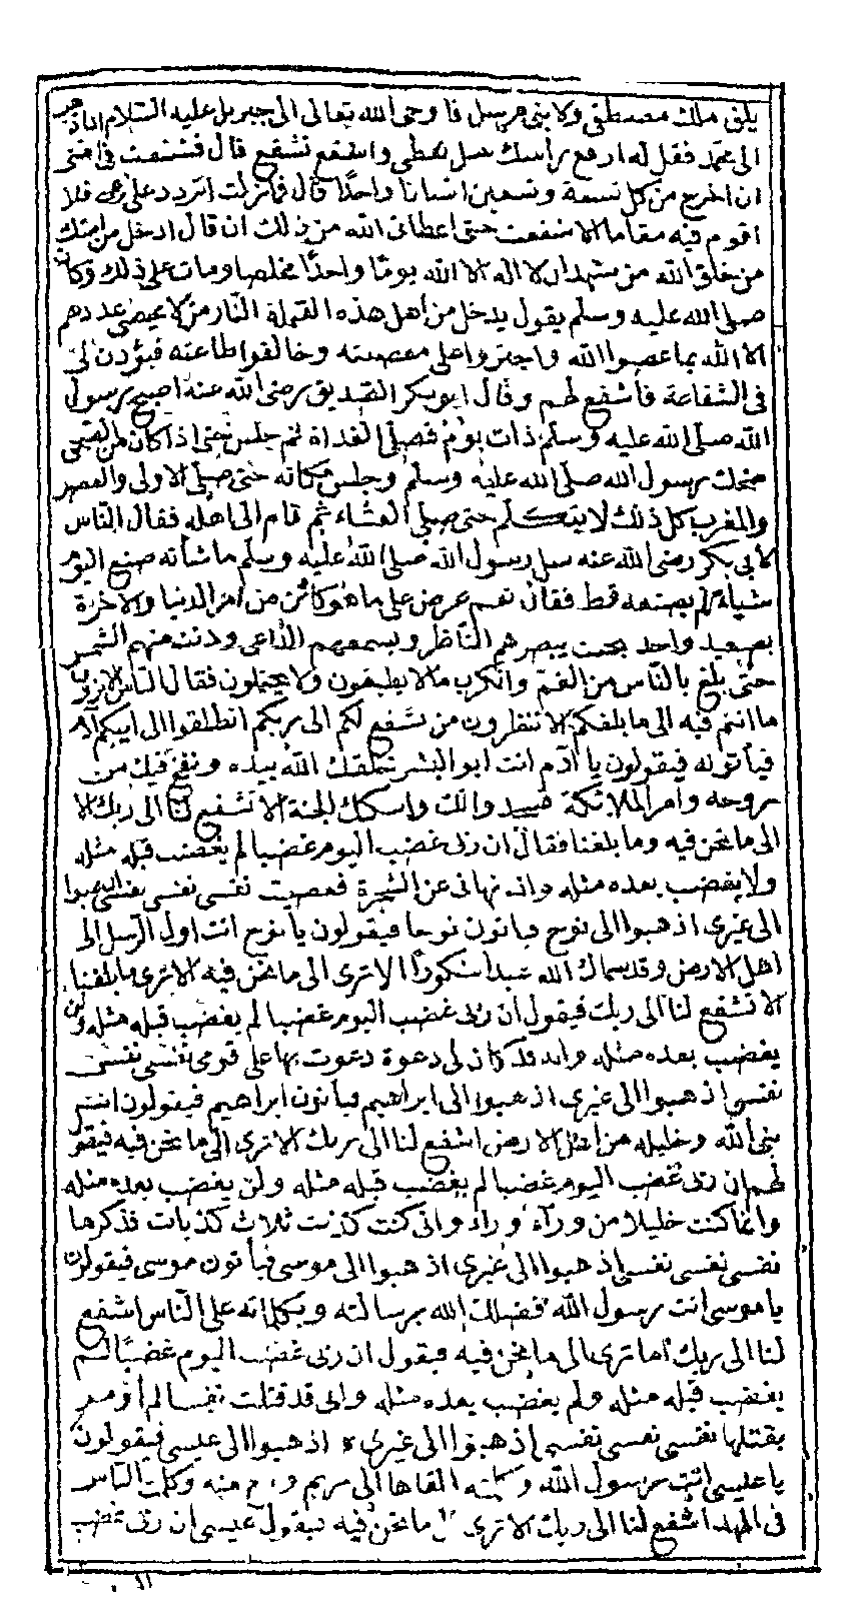 يلق ملك مصطفى ولا نبي مرسل فاوحى الله تعالى الى جبريل عليه السلام ان اذهب
الى محمد فقل له ارفع راسك سل تعطى واشفع تشفع قال فشفعت في امتى
ان اخرج من كل تسعة وتسعين انسانا واحدا قال فما زلت اتردد على ربى فلا
اقوم فيه مقاما الا شفعت حتى اعطانى الله من ذلك ان قال ادخل من امتك
من خلق الله من شهد ان لا اله الا الله يوما واحدا مخلصا ومات على ذلك وكان
صلى الله عليه وسلم يقول يدخل من اهل هذه القبلة النار من لا يحصى عددهم
الا الله بما عصوا الله واجتروا على معصيته وخالفوا طاعته فيؤذن لى
فى الشفاعة فأشفع لهم وقال ابو بكر الصديق رضى الله عنه اصبح رسول
الله صلى الله عليه وسلم ذات يوم فصلى الغداة ثم جلس حتى اذا كان من الضحى
ضحك رسول الله صلى الله عليه وسلم وجلس مكانه حتى صلى الاولى والعصر
والمغرب كل ذلك لا يتكلم حتى صلى العشاء ثم قام الى اهله فقال الناس
لابى بكر رضى الله عنه سل رسول الله صلى الله عليه وسلم ما شأنه صنع اليوم
شياء لم يصنعه قط فقال نعم عرض على ما هو كائن من امر الدنيا والآخرة
بصعيد واحد بحيث يبصرهم الناظر ويسمعهم الداعى ودنت منهم الشمس
حتى بلغ بالناس من الغم والكرب ما لا يطيقون ولا يحتملون فقال الناس الا ترون
ما انتم فيه الى ما بلغكم الا تنظرون من تشفع لكم الى ربكم انطلقوا الى ابيكم آدم
فيأتونه فيقولون يا آدم انت ابو البشر خلقك الله بيده ونفخ فيك من
روحه وامر الملائكة فسجدوا لك واسكنك الجنة الا تشفع لنا الى ربك الا
الى ما نحن فيه وما بلغنا فقال ان ربى غضب اليوم غضبا لم يغضب قبله مثله
ولا يغضب بعده مثله وانه نهانى عن الشجرة فعصيت نفسى نفسى نفسى اذهبوا
الى غيرى اذهبوا الى نوح فيأتون نوحا فيقولون يا نوح انت اول الرسل الى
اهل الارض وقد سماك الله عبدا شكورا الا ترى الى ما نحن فيه الا ترى ما بلغنا
الا تشفع لنا الى ربك فيقول ان ربى غضب اليوم غضبا لم يغضب قبله مثله ولن
يغضب بعده مثله وانه قد كان لى دعوة دعوت بها على قومى نفسى نفسى
نفسى اذهبوا الى غيرى اذهبوا الى ابراهيم فيأتون ابراهيم فيقولون انت
نبى الله وخليله من اهل الارض اشفع لنا الى ربك الا ترى الى ما نحن فيه فيقو
لهم ان ربى غضب اليوم غضبا لم يغضب قبله مثله ولن يغضب بعده مثله
وانما كنت خليلا من ورآء ورآء وانى كنت كذبت ثلاث كذبات فذكرها
نفسى نفسى نفسى اذهبوا الى غيرى اذهبوا الى موسى فيأتون موسى فيقولون
يا موسى انت رسول الله فضلك الله برسالته وبكلامه على الناس اشفع
لنا الى ربك اما ترى الى ما نحن فيه فيقول ان ربى غضب اليوم غضبا لم
يغضب قبله مثله ولم يغضب بعده مثله وانى قد قتلت نفسا لم أومر
بقتلها نفسى نفسى نفسى اذهبوا الى غيرى اذهبوا الى عيسى فيقولون
يا عيسى انت رسول الله وكلمته القاها الى مريم وروح منه وكلمت الناس
فى المهد اشفع لنا الى ربك الا ترى الى ما نحن فيه فيقول عيسى ان ربى غضب